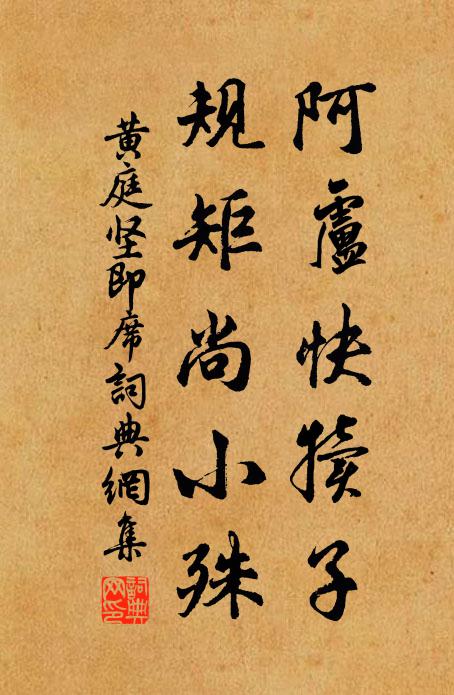 阿盧快犢子
規矩尚小殊
黃庭坚即席詞典網集
詞典網印